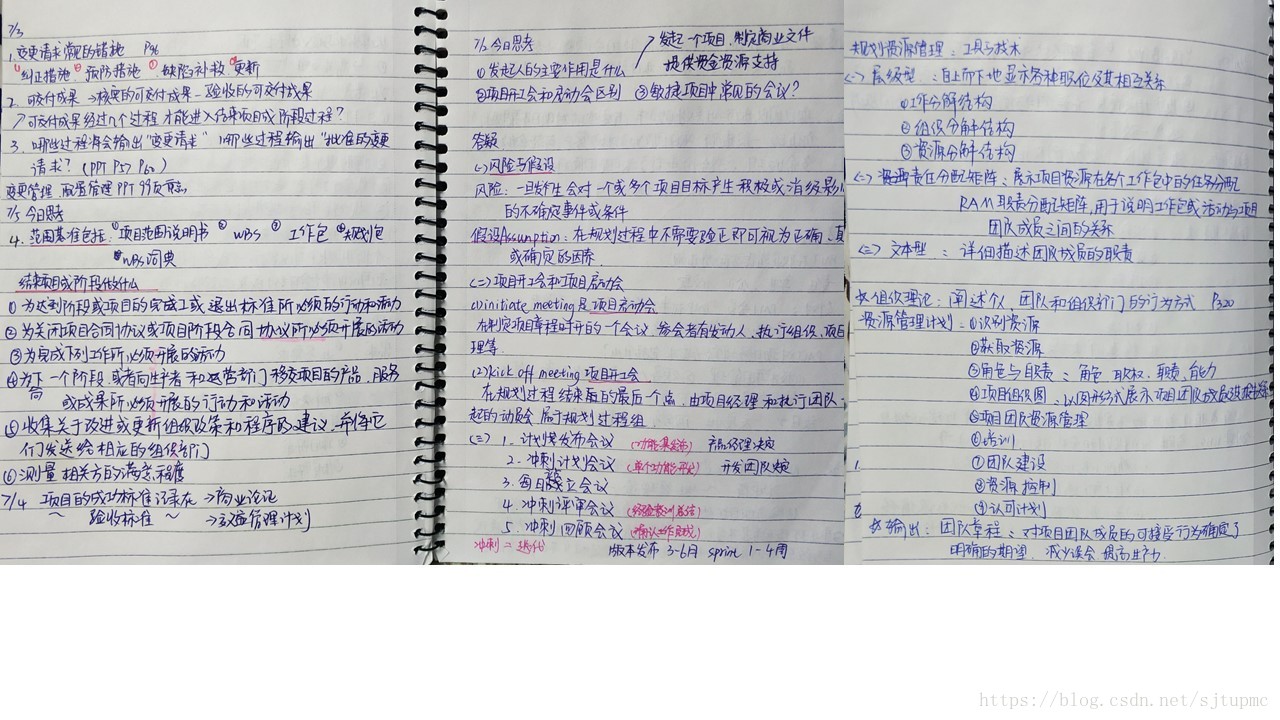 7/3
1. 变更请求常见的措施 P96
①纠正措施 ②预防措施 ③缺陷补救 ④更新
2. 可交付成果→核实的可交付成果-验收的可交付成果
↗可交付成果经过几个过程才能进入结束项目或阶段过程?
3. 哪些过程将会输出"变更请求" 哪些过程输出"批准的变更
请求? (PPT P57 P60)
变更管理 配置管理PPT 99页
7/5 今日思考
4. 范围基准包括: ①项目范围说明书 ② WBS ③ 工作包 ④规划包
⑤WBS词典
结束项目或阶段做什么
① 为达到阶段或项目的完工或退出标准所必须的行动和活动
② 为关闭项目合同协议或项目阶段合同协议所必须开展的活动
③ 为完成下列工作所必须开展的活动
④ 为下一个阶段,或者向生产者和运营部门移交项目的产品、服务
或成果所必须开展的行动和活动
⑤ 收集关于改进或更新组织政策和程序的建议,并将它
们发送给相应的组织部门
⑥ 测量相关方的满意程度
7/4 项目的成功标准记录在→商业论证
~ 验收标准 ~ →效益管理计划
7/2 今日思考
发起一个项目,制定商业文件
提供资金资源支持
① 发起人的主要作用是什么
②项目开工会和启动会区别 ③敏捷项目中常见的会议?
答疑
(一)风险与假设
风险: 一旦发生会对一个或多个项目目标产生积极或消极影
的不确定事件或条件
假设Assumption: 在规划过程中不需要验证即可视为正确、真
或确定的因素.
(二)项目开工会和项目启动会
(1)initiate meeting是项目启动会
在制定项目章程时开的一个会议 参会者有发起人、执行组织、项目
理等.
(2)kick off meeting 项目开工会
在规划过程结束后的最后一个点,由项目经理和执行团队一
起的动员会 属于规划过程组
(三) 1. 计划\发布会议 (功能集发布) 产品经理决定
2. 冲刺计划会议 (单个功能开发) 开发团队决定
3. 每日站立会议
4. 冲刺评审会议 (经验教训总结)
5. 冲刺回顾会议 (确认工作完成)
冲刺=迭代 版本发布 3-6月 sprint 1-4周
规划资源管理: 工具与技术
(一) 层级型: 自上而下地显示各种职位及其相互关系
①工作分解结构
②组织分解结构
③资源分解结构
(二) 责任分配矩阵、展示项目资源在各个工作包中的任务分配
RAM职责分配矩阵,用于说明工作包或活动与项目
团队成员之间的关系
(三) 文本型: 详细描述团队成员的职责
※组织理论: 阐述个人、团队和组织部门的行为方式 P320
资源管理计划: ①识别资源
②获取资源
③角色与职责: 角色 职权、职责、能力
④项目组织图: 以图形方式展示项目团队成员及其报告关系
⑤项目团队资源管理
⑥培训
⑦团队建设
⑧资源控制
⑨认可计划
※输出: 团队章程: 对项目团队成员的可接受行为确定了
明确的期望. 减少误会 提高生产力.
https://blog.csdn.net/sjtupmc